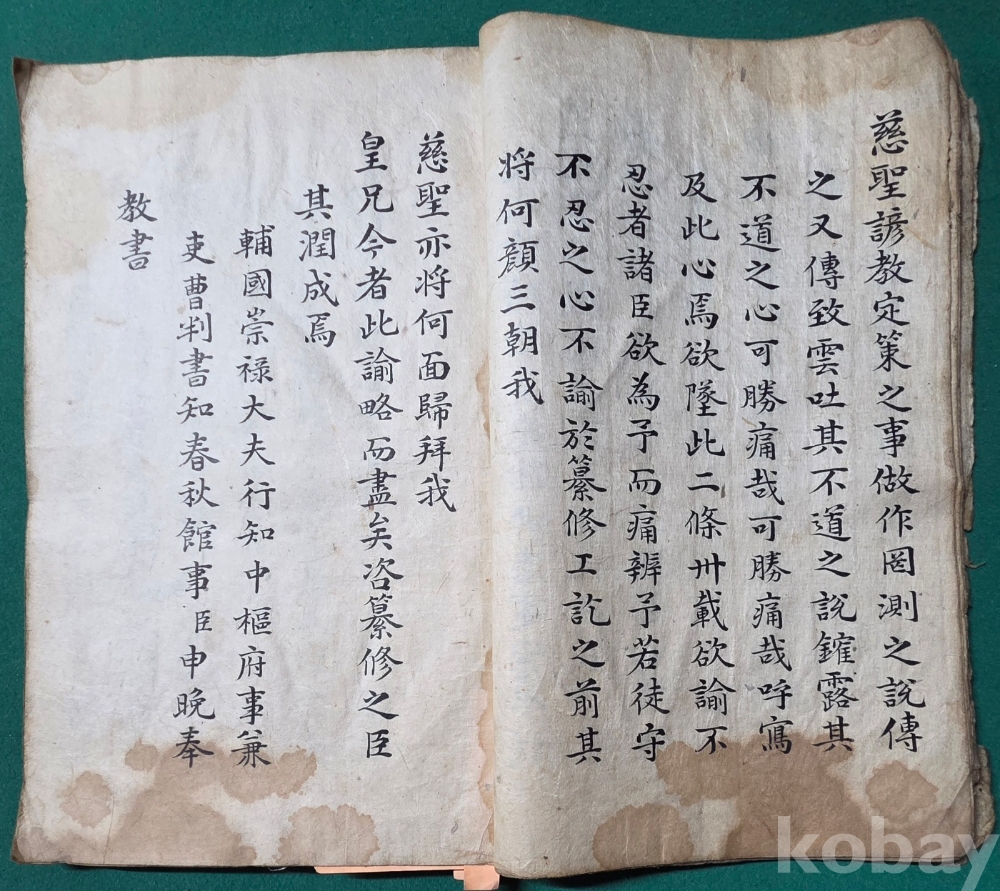 慈聖諺教定策之事做作罔測之說傳
之又傳致雲吐其不道之說鑓露其
不道之心可勝痛哉可勝痛哉呼寫
及此心焉欲墜此二條卅載欲諭不
忍者諸臣欲為予而痛辨予若徒守
不忍之心不諭於纂修工訖之前其
將何顏三朝我
慈聖亦將何面歸拜我
皇兄今者此諭略而盡矣咨纂修之臣
其潤成焉
輔國崇祿大夫行知中樞府事兼
吏曹判書知春秋館事臣申晚奉
教書
kobay